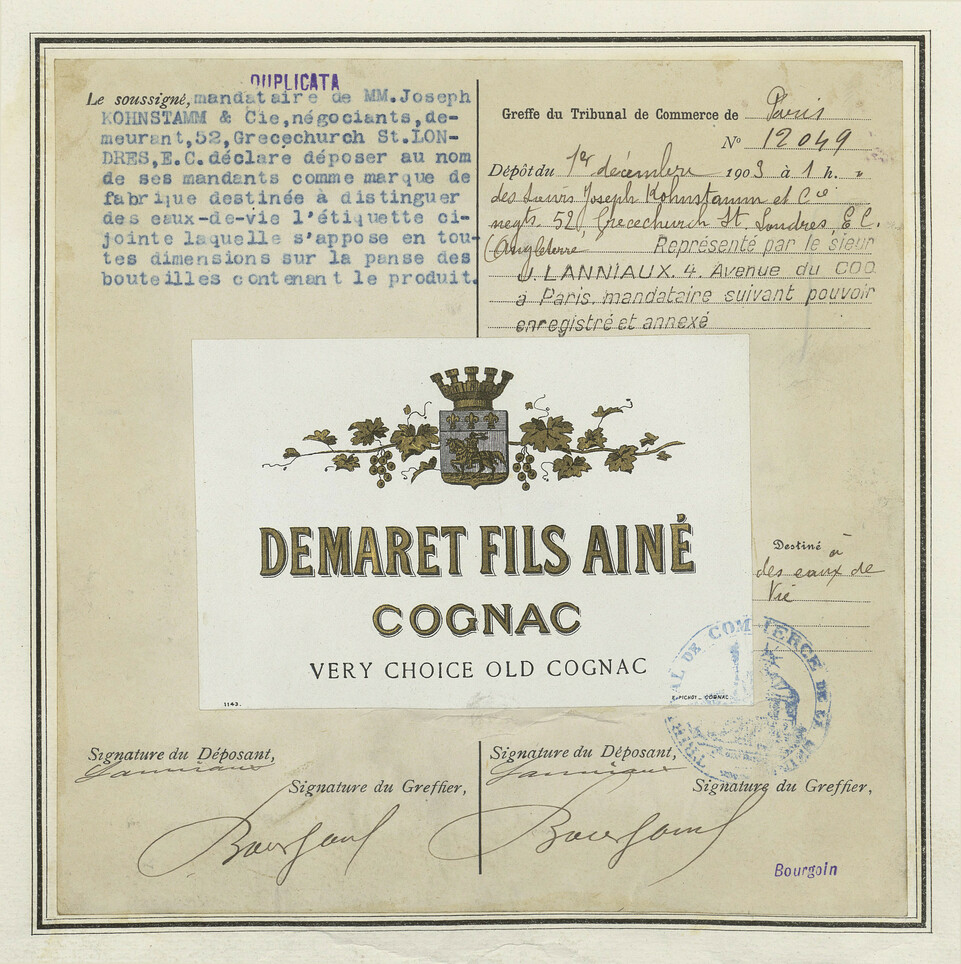 DUPLICATA
Le soussigné, mandataire de MM.Joseph
KOHNSTAMM & Cie,négociants,de-
meurant,52,Grecechurch St.LON-
DRES,E.C.déclare déposer au nom
de ses mandants comme marque de
fabrique destinée à distinguer
des eaux-de-vie l'étiquette ci-
jointe laquelle s'appose en tou-
tes dimensions sur la panse des
bouteilles contenant le produit.
Greffe du Tribunal de Commerce de Paris
No 12049
Dépôt du 1er décembre 1903 à 1 h. "
des Sieurs Joseph Kohnstamm et Cie
negts. 52, Grecechurch St. Londres, E.C.
(Angleterre Représenté par le sieur
J. LANNIAUX. 4. Avenue du COQ
à Paris. mandataire suivant pouvoir
enregistré et annexé
DEMARET FILS AINÉ
COGNAC
VERY CHOICE OLD COGNAC
1143.
E. PICHOT _ COGNAC
Destiné à
des eaux de
Vie
TRIBUNAL DE COMMERCE DE LA
Signature du Déposant,
Lanniaux
Signature du Greffier,
Bourgoin
Signature du Déposant,
Lanniaux
Signature du Greffier,
Bourgoin
Bourgoin